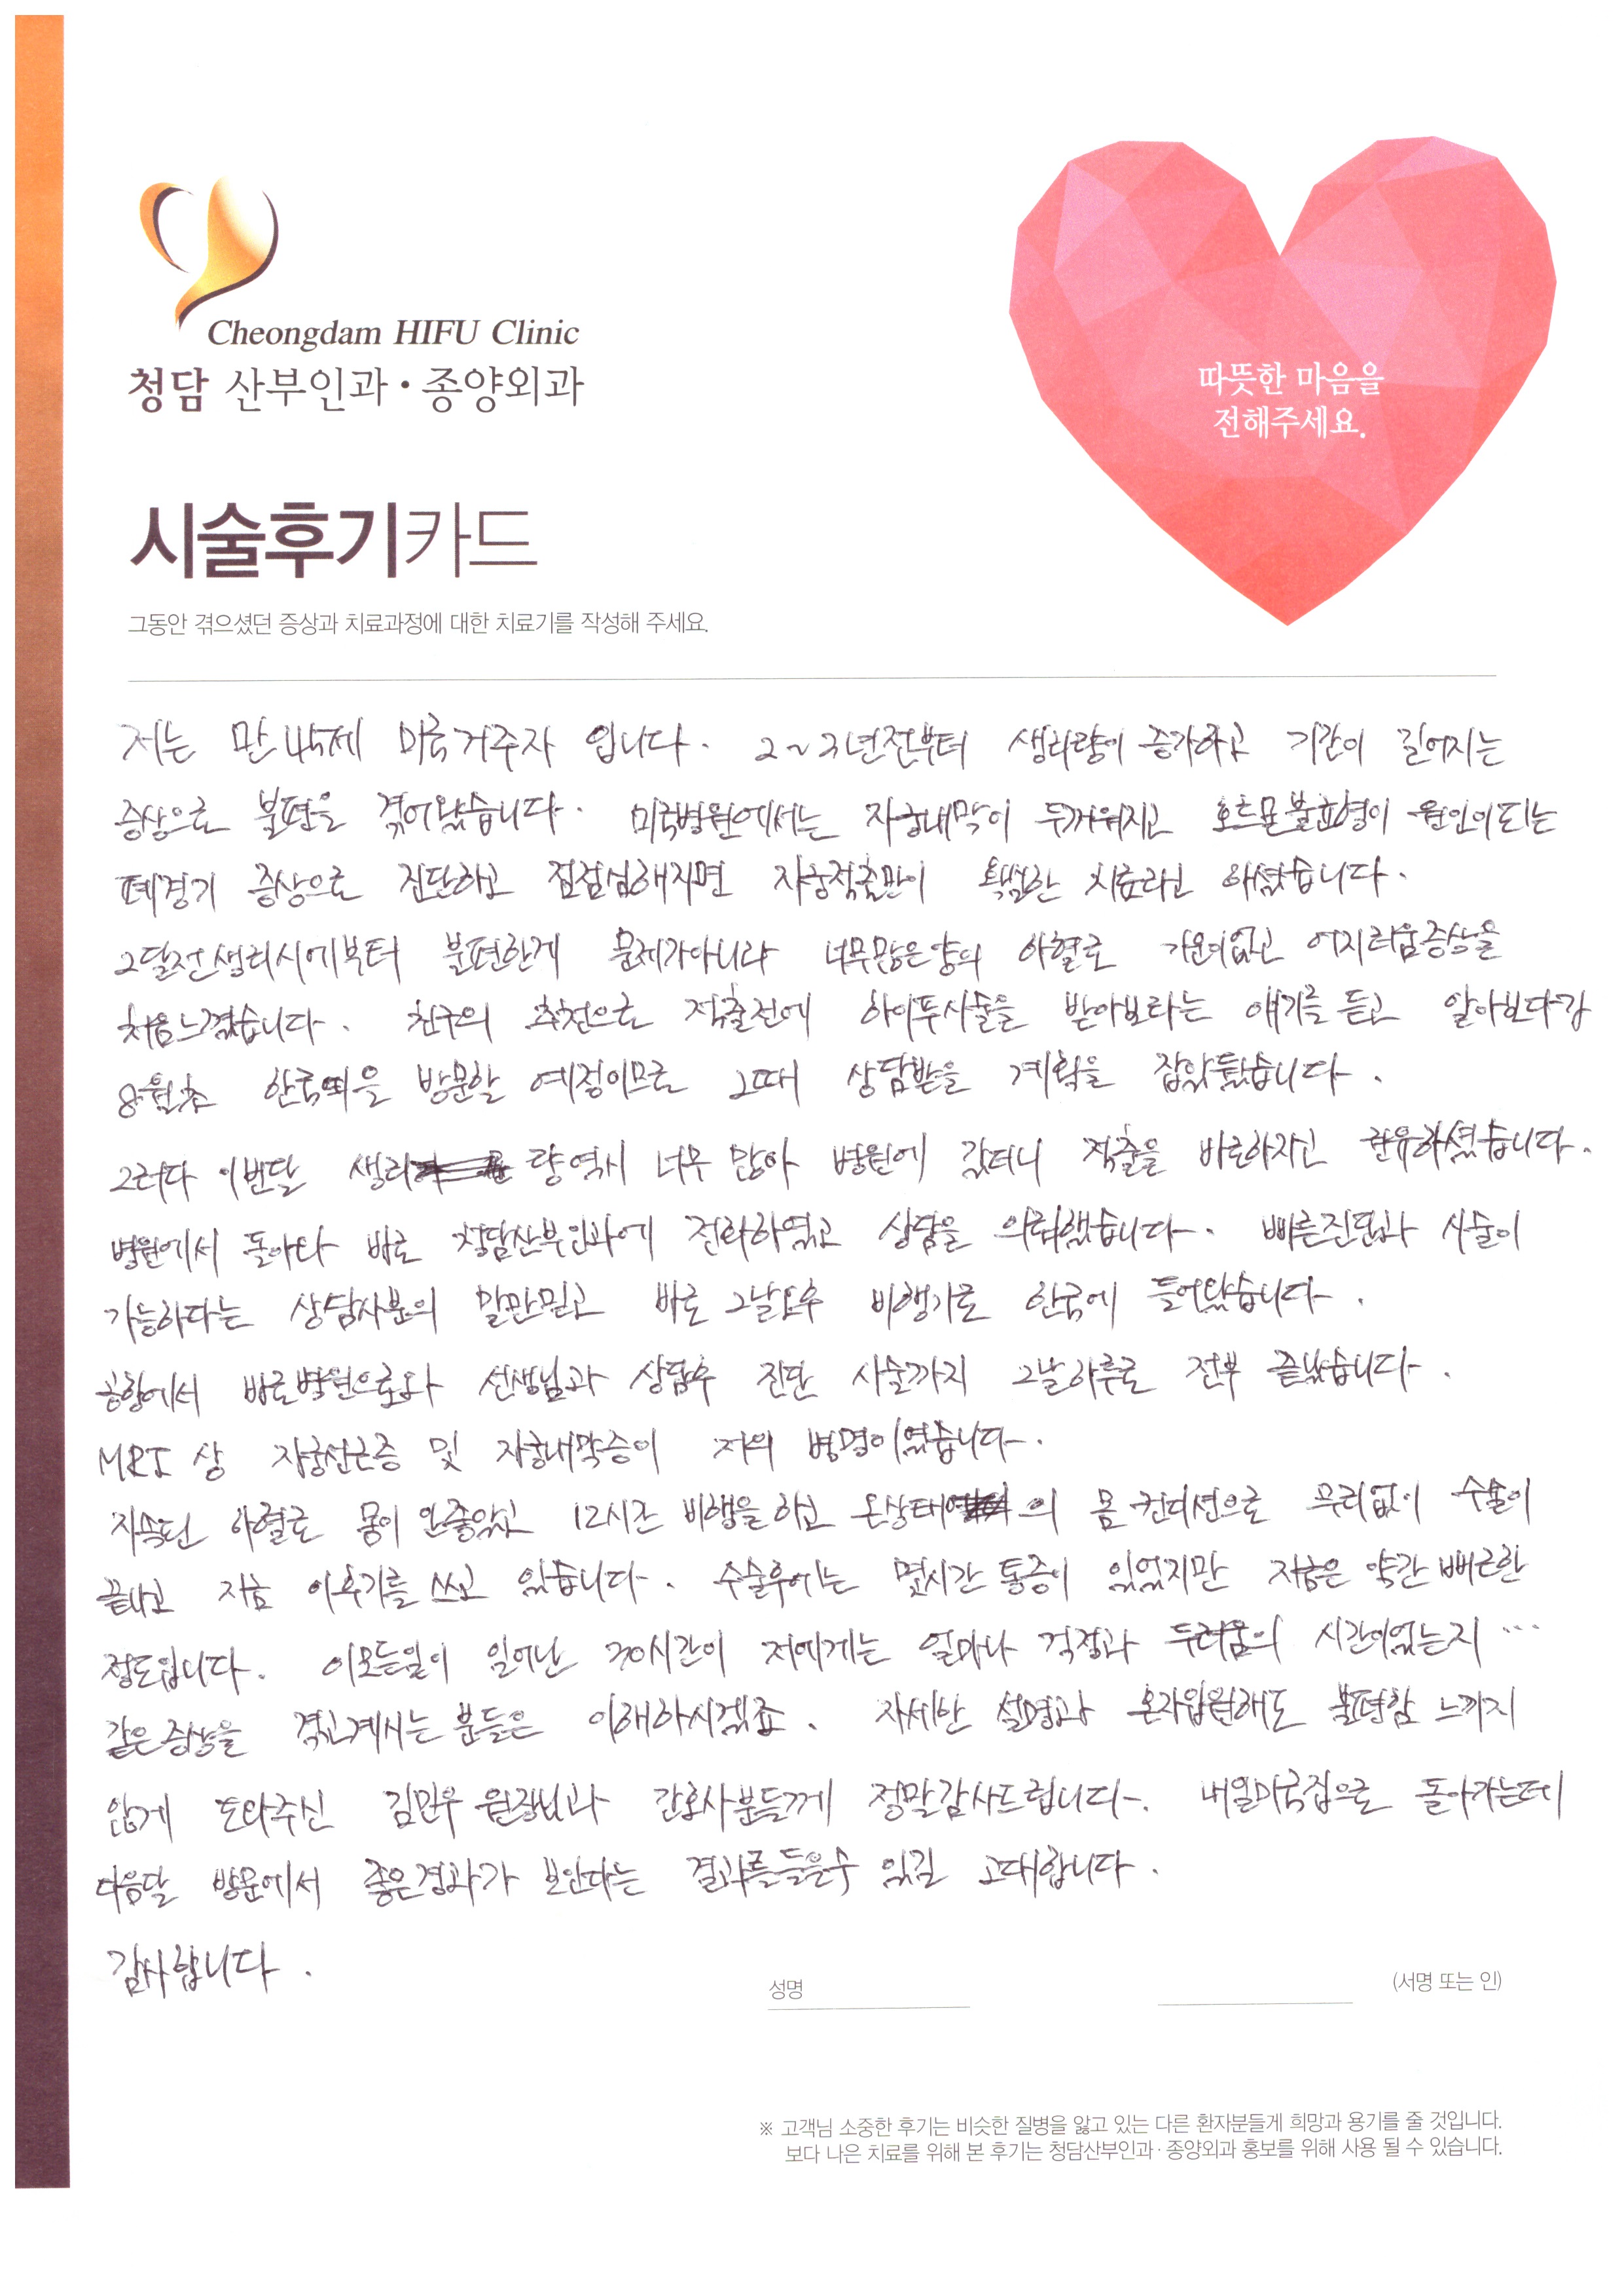 Cheongdam HIFU Clinic
청담 산부인과·종양외과
따뜻한 마음을
전해주세요.
시술후기카드
그동안 겪으셨던 증상과 치료과정에 대한 치료기를 작성해 주세요.
저는 만 45세 미국거주자 입니다. 2~3년전부터 생리량이 증가하고 기간이 길어지는
증상으로 불편을 겪어왔습니다. 미국병원에서는 자궁내막이 두꺼워지고 호르몬불균형이 원인이되는
폐경기 증상으로 진단하고 점점심해지면 자궁적출만이 특별한 치료라고 하셨습니다.
2달전생리시에부터 불편한게 문제가아니라 너무많은양의 하혈로 기운이없고 어지러움증상을
처음느꼈습니다. 친구의 추천으로 적출전에 하이푸시술을 받아보라는 얘기를 듣고 알아보다가
8월초 한국을 방문할 예정이므로 그때 상담받을 계획을 잡아뒀습니다.
그러다 이번달 생리량역시 너무 많아 병원에 갔더니 적출을 바로하자고 권유하셨습니다.
병원에서 돌아와 바로 청담산부인과에 전화하였고 상담을 의뢰했습니다. 빠른진단과 시술이
가능하다는 상담사분의 말만믿고 바로 그날오후 비행기로 한국에 들어왔습니다.
공항에서 바로병원으로와 선생님과 상담후 진단 시술까지 그날하루로 전부 끝났습니다.
MRI 상 자궁선근증 및 자궁내막증이 저의 병명이였습니다.
지속된 하혈로 몸이 안좋았고 12시간 비행을하고 온상태의 몸 컨디션으로 무리없이 수술이
끝나고 지금 이후기를 쓰고 있습니다. 수술후에는 몇시간 통증이 있었지만 지금은 약간 뻐근한
정도입니다. 이모든일이 일어난 30시간이 저에게는 얼마나 걱정과 두려움의 시간이였는지 ...
같은증상을 겪고계시는 분들은 이해하시겠죠. 자세한 설명과 혼자입원해도 불편함 느끼지
않게 도와주신 김민우 원장님과 간호사분들께 정말감사드립니다. 내일미국집으로 돌아가는데
다음달 방문에서 좋은경과가 보인다는 결과를들을수 있길 고대합니다.
감사합니다.
성명
(서명 또는 인)
※ 고객님 소중한 후기는 비슷한 질병을 앓고 있는 다른 환자분들게 희망과 용기를 줄 것입니다.
보다 나은 치료를 위해 본 후기는 청담산부인과·종양외과 홍보를 위해 사용 될 수 있습니다.